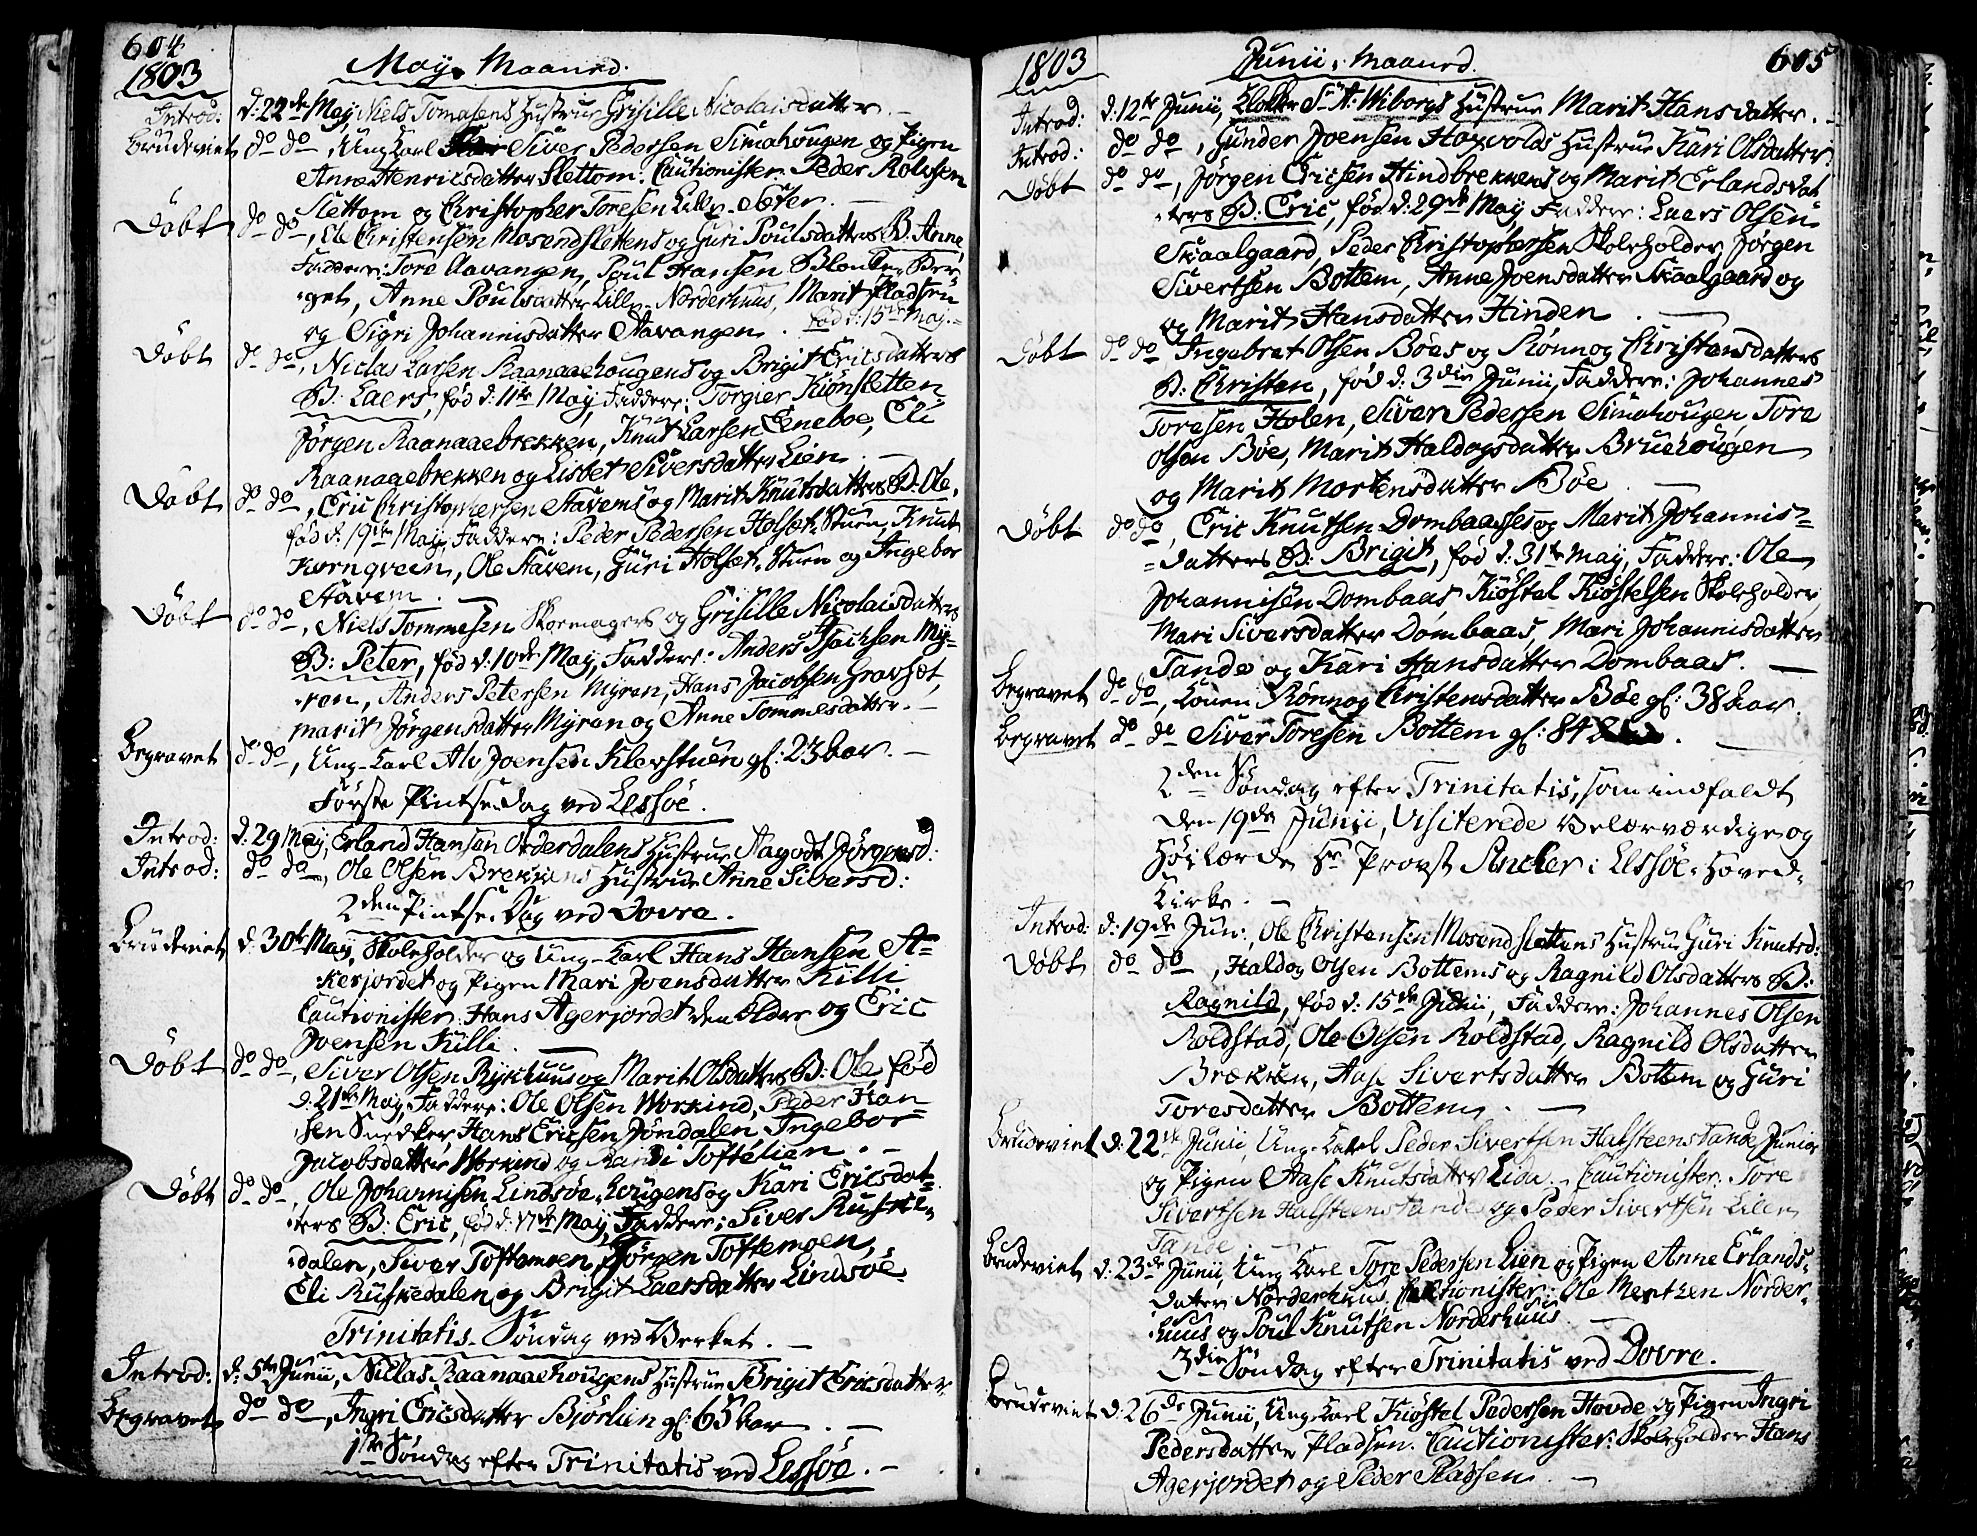 604
1803
May Maaned.
Introd: d: 22de May, Niels Tomasens Hustrue Grisille Nicolaisdatter.
Brudeviet do do, Ung Karl Siver Pedersen Simahougen og Pigen
Anne Henricsdatter Slettom. Cautionister Peder Rolvsen
Slettom og Christopher Toresen Lille-Sæter.
Døbt do do, Ole Christensen Mosendslettens og Guri Poulsdatters B: Anne,
Faddere: Tore Aavangen, Poul Hansen
get, Anne Poulsdatter Lille Norderhuus, Marit Pladsen
og Sigri Johannisdatter Aavangen. fød d: 15de Maj.
Døbt do do, Niclas Larsen Raanaaehougens og Brigit Ericsdatters
B: Laers, fød d: 11te May, Faddere: Torgier Kiønsletten
Jørgen Raanaaebrekken, Knut Larsen Eneboe, Eli
Raanaaebrekken og Lisbet Siversdatter Lien.
Døbt do do, Eric Christophersen Stavems og Marit Knutsdatters B: Ole,
fød d: 19de May, Faddere: Peder Pedersen Holset-Stuen, Knut
Korngveen, Ole Stavem, Guri Holset-Stuen og Ingebor
Stavem.
Døbt do do, Niels Tommesen Skoemagers og Grisille Nicolaisdatters
B: Peter, fød d: 10de May, Faddere: Anders Isachsen My-
ron, Anders Petersen Myran, Hans Jacobsen Gravset,
Marit Jørgensdatter Myran og Anne Tommesdatter.
Begravet do do, Ung-Karl Alv Joensen Klevstuen gl: 23 aar.
Første Pintsedag ved Lessøe.
Introd: d: 29 May, Erland Hansen Orderdalens Hustrue Aagodt Jørgensd:
Introd: do do, Ole Olsen Brekkens Hustrue Anne Siversd:
2den Pintse-Dag ved Dovre.
Brudeviet d: 30te May, Skoleholder og Ung-Karl Hans Hansen A-
kerjordet og Pigen Mari Joensdatter Killi
Cautionister: Hans Agerjordet den Eldre og Eric
Joensen Killi.
Døbt do do, Siver Olsen Rykhuus og Marit Olsdatters B: Ole, fød
d: 21te May, Faddere: Ole Olsen Workind, Peder Han-
sen Snedker, Hans Ericsen Jøndalen, Ingebor
Jacobsdatter Workind og Randi Toftelien.
Døbt do do, Ole Johannisen Lindsøe-Hougens og Kari Ericsdat-
ters B: Eric, fød d: 17de May, Faddere: Siver Ruske-
dalen, Siver Toftemoen, Jørgen Toftemoen,
Eli Ruskedalen og Brigit Laersdatter Lindsøe.
Trinitatis-Søndag ved Verket.
Introd: d: 5te Junii, Niclas Raanaaehougens Hustrue Brigit Ericsdatter.
Begravet do do, Ingri Ericsdatter Bjørlien gl: 65 aar.
1ste Søndag efter Trinitatis ved Lessøe.
1803
Junii Maaned.
605
Introd: d: 12te Junii, Klokker Sr A: Wiborgs Hustrue Marit Hansdatter.
Introd: do do, Gunder Joensen Hoxvolds Hustrue Kari Olsdatter.
Døbt do do, Jørgen Ericsen Hindbrekkens og Marit Erlandsdat
ters B: Eric, fød d: 29de May, Faddere: Laers Olsen
Skaalgaard, Peder Christophersen Skoleholder, Jørgen
Sivertsen Bottem, Anne Joensdatter Skaalgaard og
og Marit Hansdatter Hinden.
Døbt do do Ingebret Olsen Bøes og Rønnog Christensdatters
B: Christen, fød d: 3die Junii, Faddere: Johannes
Toresen Holen, Siver Pedersen Simahougen, Tore
Olsen Bøe, Marit Haldogsdatter Bruehougen
og Marit Mortensdatter Bøe
Døbt do do, Eric Knutsen Dombaasses og Marit Johannis-
datters B: Brigit, fød d: 31te May, Faddere: Ole
Johannisen Dombaas, Kiøstel Kiøstelsen Skoleholder,
Mari Siversdatter Dombaas, Mari Johannisdatter
Tande og Kari Hansdatter Dombaas.
Begravet do do, Konen Rønnog Christensdatter Bøe gl: 38 aar.
Begravet do do Siver Toresen Bottem gl: 84
2den Søndag efter Trinitatis, som indfaldt
den 19de Junii, Visiterede Velærværdige og
Høilærde Hr Provst Ancher i Lessøe-Hoved-
Kirke.
Introd: d: 19de Jun:, Ole Christensen Mosendslettens Hustrue Guri Knutsd:
Døbt do do, Haldog Olsen Bottems og Ragnild Olsdatters B:
Ragnild, fød d: 15de Junii, Faddere: Johannes Olsen
Roldstad, Ole Olsen Roldstad, Ragnild Olsdatter
Brækken, Aase Sivertsdatter Bottem og Guri
Toresdatter Bottem.
Brudeviet d: 22de Junii, Ung-Karl Peder Sivertsen Halsteenstande Junior
og Pigen Aase Knutsdatter Lien. Cautionister: Tore
Sivertsen Halsteenstande og Peder Sivertsen Lille
Tande.
Brudeviet d: 23de Junii, Ung Karl Tore Pedersen Lien og Pigen Anne Erlands-
datter Norderhuus, Cautionister: Ole Mentzen Norder-
huus og Poul Knutsen Norderhuus.
3die Søndag efter Trinitatis ved Dovre.
Brudeviet d: 26de Junii, Ung-Karl Kiøstel Pedersen Hovde og Pigen Ingri
Pedersdatter Pladsen. Cautionister: Skoleholder Hans
Agerjordet og Peder Pladsen.